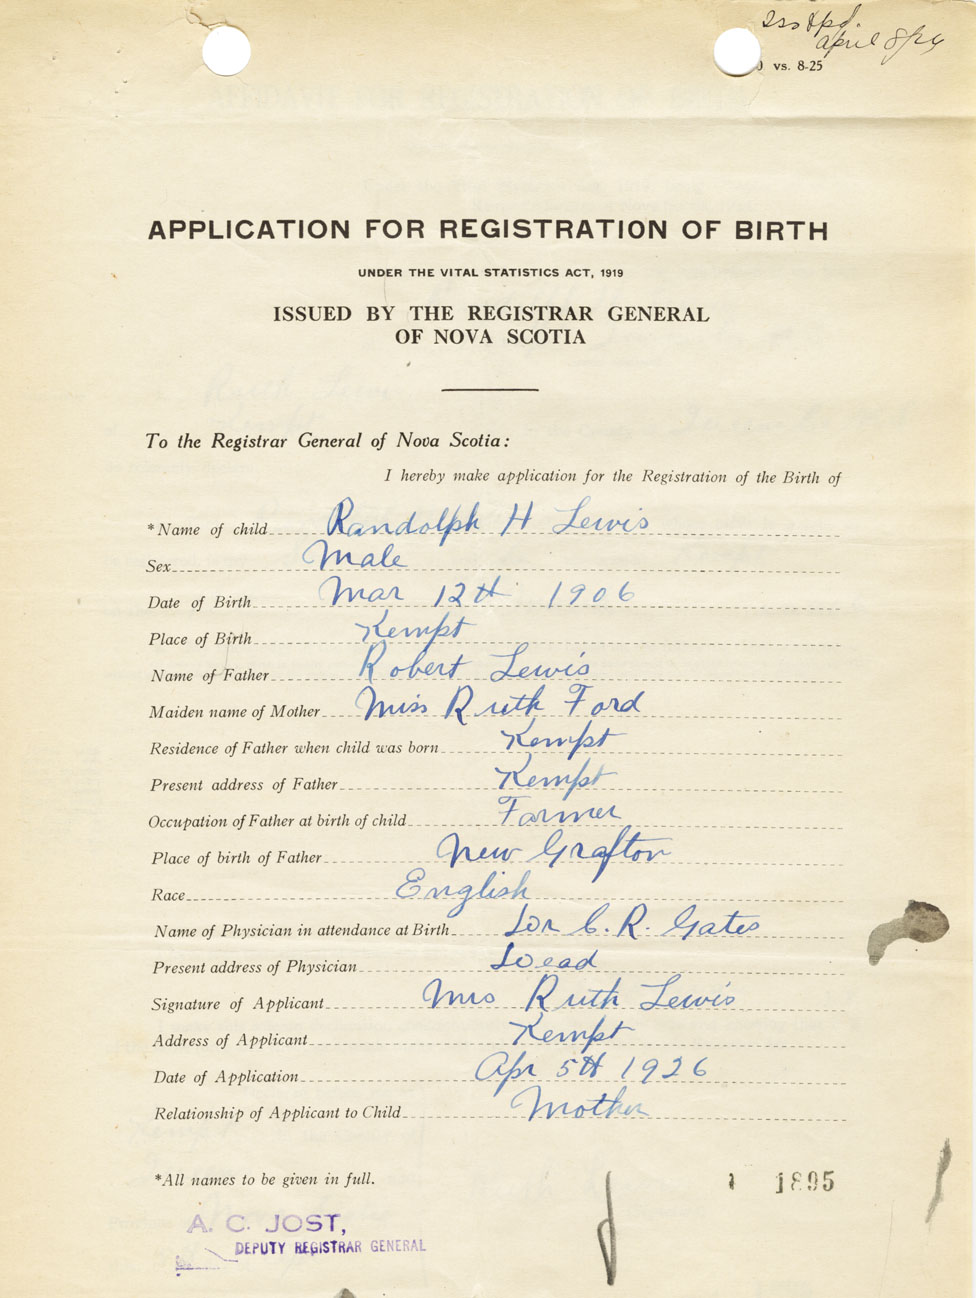 April 8/26
vs. 8-25
APPLICATION FOR REGISTRATION OF BIRTH
UNDER THE VITAL STATISTICS ACT, 1919
ISSUED BY THE REGISTRAR GENERAL
OF NOVA SCOTIA
To the Registrar General of Nova Scotia:
I hereby make application for the Registration of the Birth of
*Name of child Randolph H Lewis
Sex Male
Date of Birth Mar 12th 1906
Place of Birth Kempt
Name of Father Robert Lewis
Maiden name of Mother Miss Ruth Ford
Residence of Father when child was born Kempt
Present address of Father Kempt
Occupation of Father at birth of child Farmer
Place of birth of Father New Grafton
Race English
Name of Physician in attendance at Birth Dr C. R. Gates
Present address of Physician Dead
Signature of Applicant Mrs Ruth Lewis
Address of Applicant Kempt
Date of Application Apr 5th 1926
Relationship of Applicant to Child Mother
*All names to be given in full.
1895
A. C. JOST,
DEPUTY REGISTRAR GENERAL